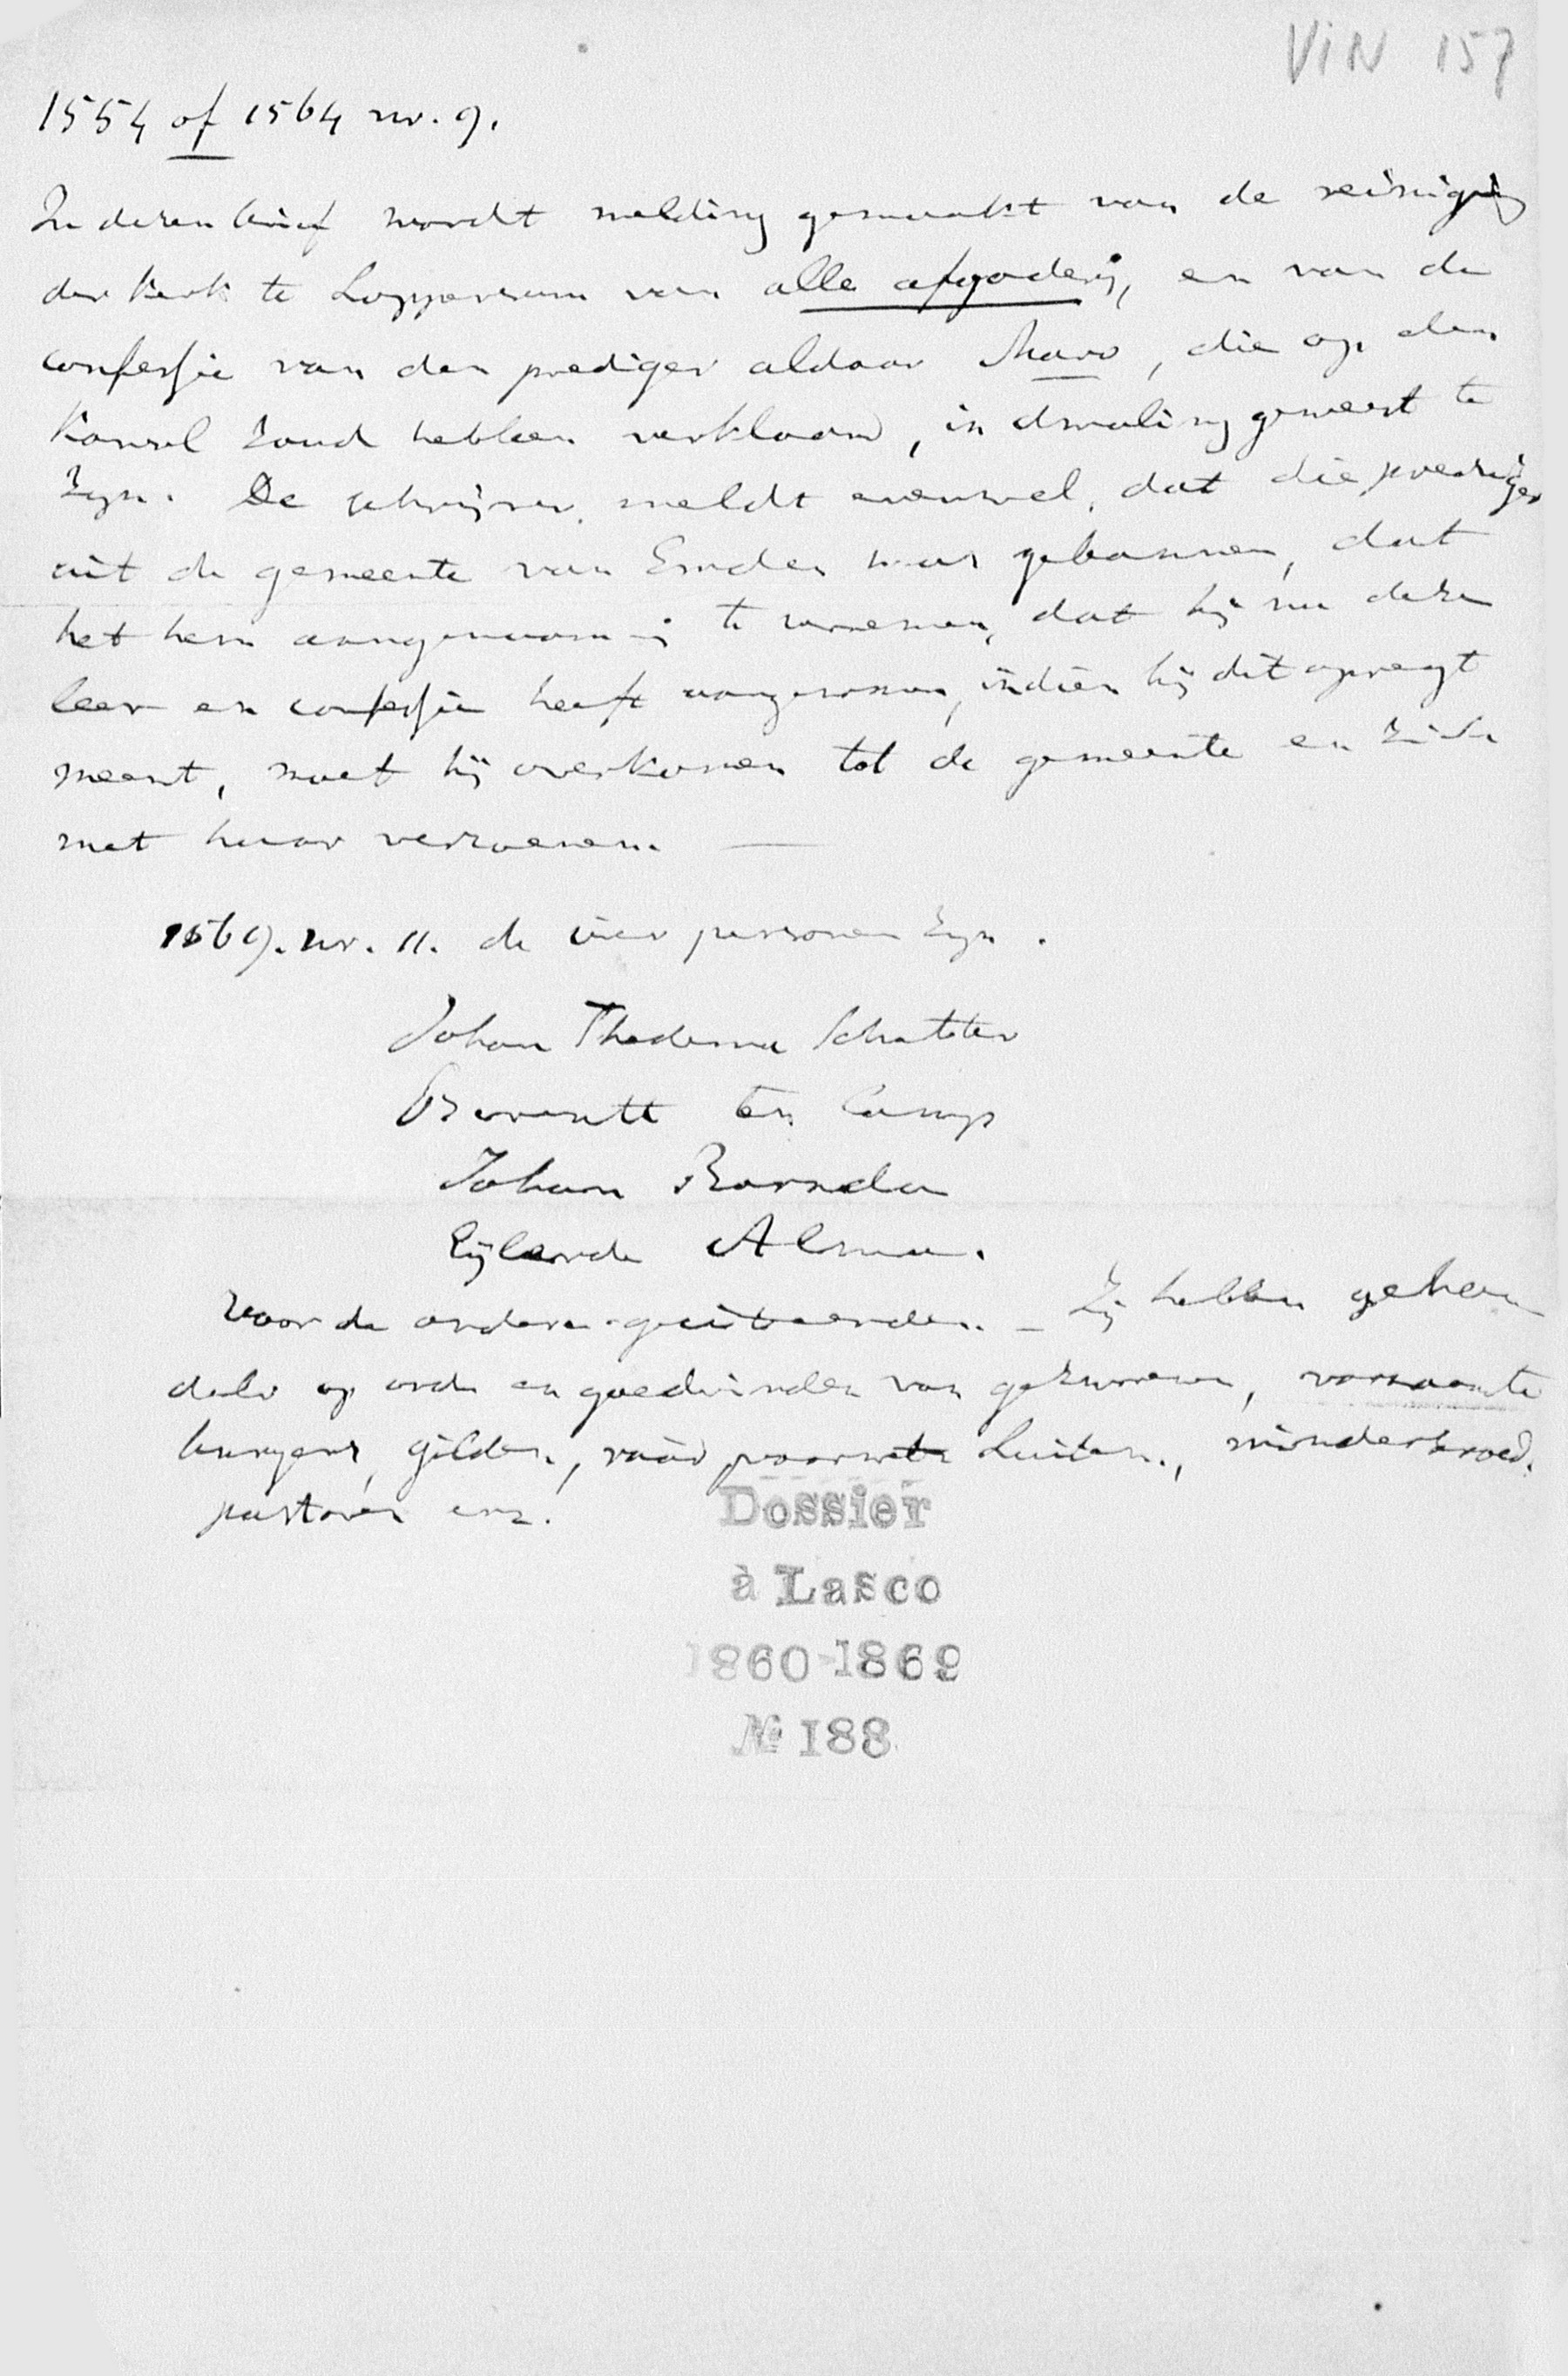 VIN 157
1554 of 1564 nr. 9.
In dezen brief wordt melding gemaakt van de reiniging
der kerk te Loppersum van alle afgoderij, en van de
confessie van den prediger aldaar Maro, die op den
Kansel zoud hebben verklaard, in dwaling geweest te
zyn. De schrijver meldt evenwel, dat die prediger
uit de gemeente van Emden was gebannen, dat
het hem aangenaam is te vernemen, dat hij nu deze
leer en confessie heeft aangenomen, indien hij dit opregt
meent, moet hij overkomen tot de gemeente en zich
met haar verzoenen. —
1569. nr. 11. de vier personen zyn.
Johan Thedema Schatter
Berentt ten Camp
Johan Barnda
Eijlardt Alma.
voor de andere geciteerden. — Zij hebben gehan
deld op order en goedvinden van gezworene, vornaamte
burgers, gilden, raad luiden, minderbroed.
pastoren enz.
Dossier
à Lasco
1860-1869
№ 188